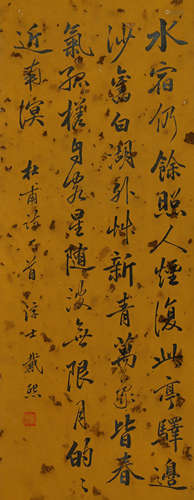 水宿仍餘照人煙復此亭驛邊
沙舊白湖外艸新青萬象皆春
氣孤槎自客星隨波無限月的〻
近南溟
杜甫詩一首 淳士戴熙